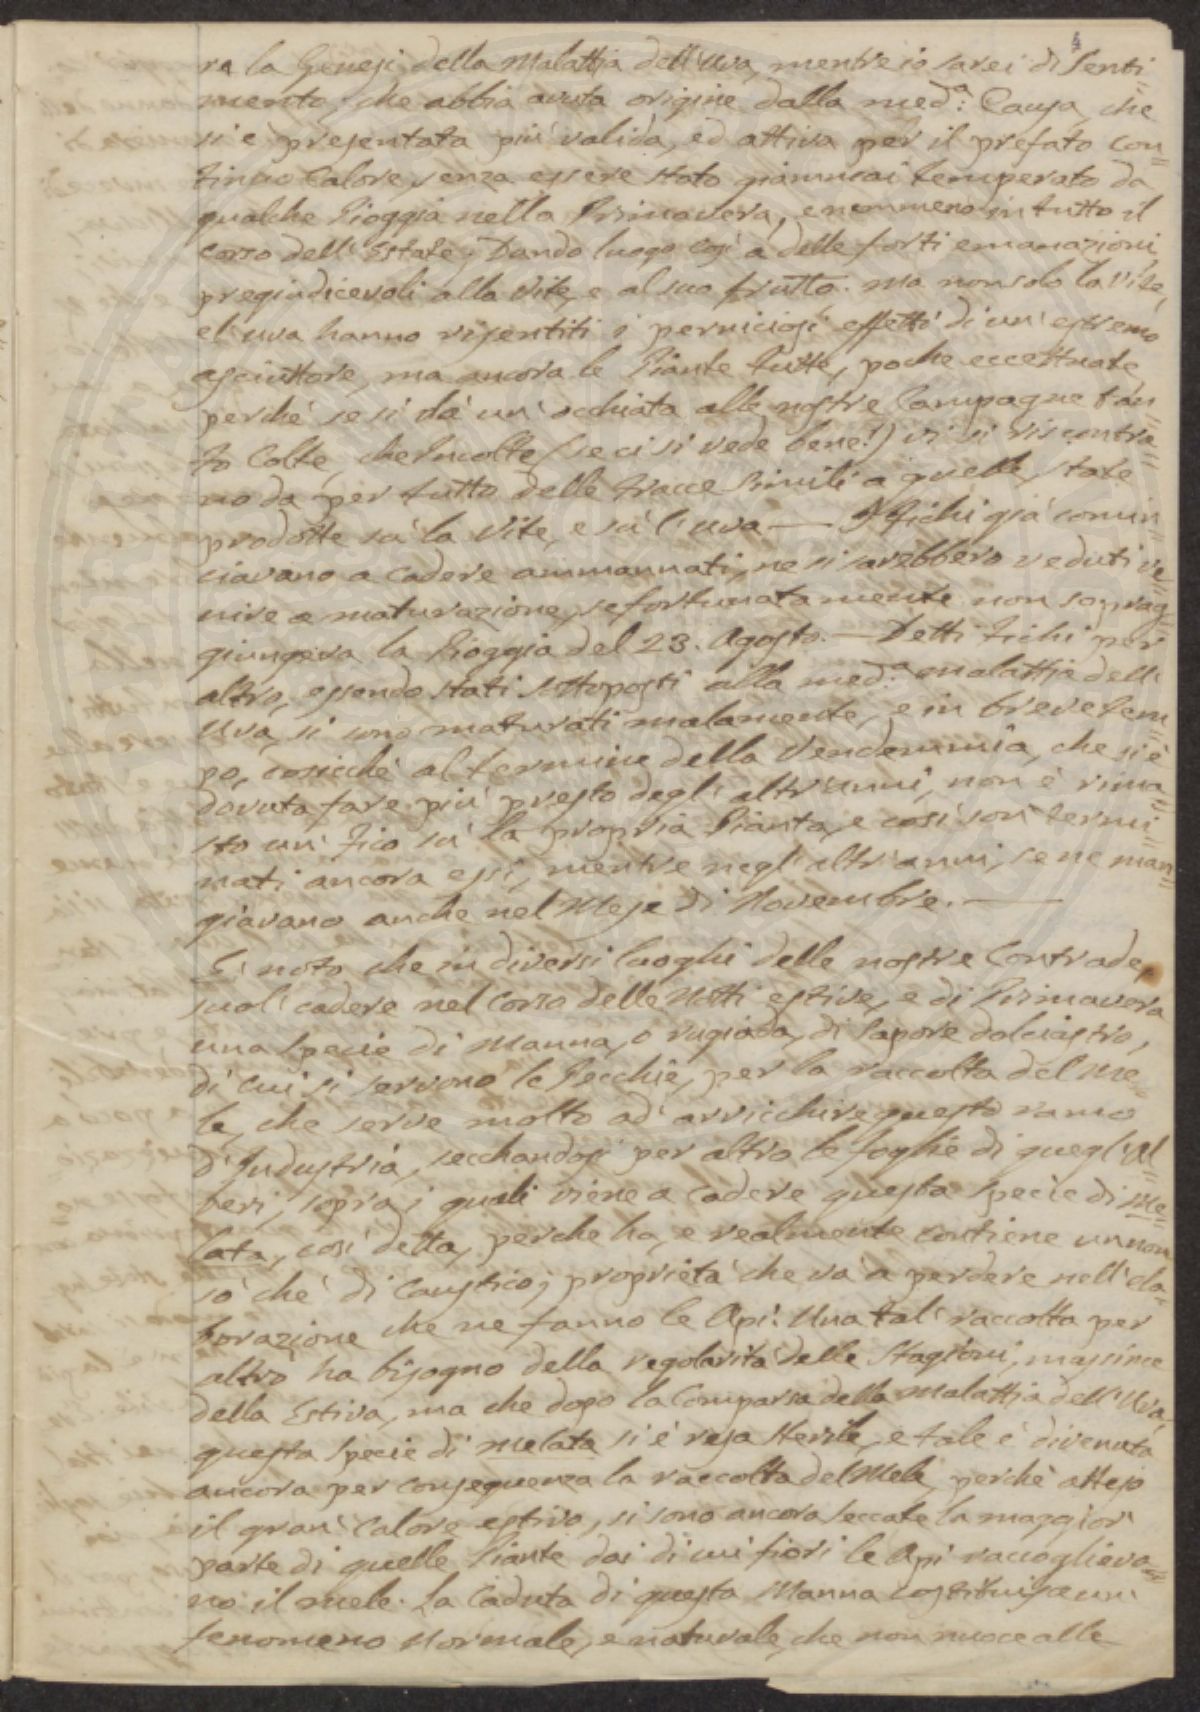 4
ra la Genesi della Malattia dell'uva, mentre io sarei di Senti=
mento, che abbia avuta origine dalla med.a Causa, che
si è presentata più valida, ed attiva per il prefato con=
tinuo Calore, senza essere stato giammai temperato da
qualche Pioggia nella Primavera, e nemmeno in tutto il
corso dell'Estate; Dando luogo così a delle forti emanazioni,
pregiudicevoli alla Vite, e al suo frutto. Ma non solo la Vite,
e l'uva hanno risentiti i perniciosi effetti di un'estremo
asciuttore, ma ancora le Piante tutte, poche eccettuate,
perchè se si dà un'occhiata alle nostre Campagne tan=
to Colte, che Incolte (se ci si vede bene!) vi si riscontra=
no da per tutto delle tracce Simili a quelle, state
prodotte sù la Vite, e sù l'uva — I Fichi già comin=
ciavano a cadere ammannati, ne si sarebbero veduti ve=
nire a maturazione, se fortunatamente non soprag=
giungeva la Pioggia del 23. Agosto. — Detti Fichi per
altro, essendo stati sottoposti alla med.a Malattia dell'
Uva, si sono maturati malamente, e in breve tem=
po, cosicchè al termine della Vendemmia, che si è
dovuta fare più presto degl'altr'anni, non è rima=
sto un'Fico sù la propria Pianta, e così son'termi=
nati ancora essi, mentre negl'altr'anni, se ne man=
giavano anche nel Mese di Novembre. —
E' noto che in diversi luoghi delle nostre Contrade,
suol'cadere nel Corso delle Notti estive, e di Primavera
una Specie di Manna, o rugiada, di Sapore dolciastro,
di cui si servono le Pecchie, per la raccolta del Me=
le, che serve molto ad'arricchire questo ramo
d'Industria, secchandosi per altro le foglie di quegl'Al=
beri, sopra i quali viene a cadere questa Specie di Me=
lata, così detta, perche ha, e realmente contiene un non
sò chè di Caustico; proprietà che và a perdere nell'ela=
borazione che ne fanno le Api: Una tal'raccolta per
altro ha bisogno della regolarità delle Stagioni, massime
della Estiva, ma che dopo la Comparsa della Malattia dell'Uva,
questa Specie di Melata si è resa Sterile, e tale è divenuta
ancora per conseguenza la raccolta del Mele, perchè atteso
il gran'Calore estivo, si sono ancora Seccate la maggior'
parte di quelle Piante dai di cui fiori le Api raccoglieva=
no il mele. La Caduta di questa Manna costituisce un'
fenomeno Normale, e naturale, che non nuoce alle